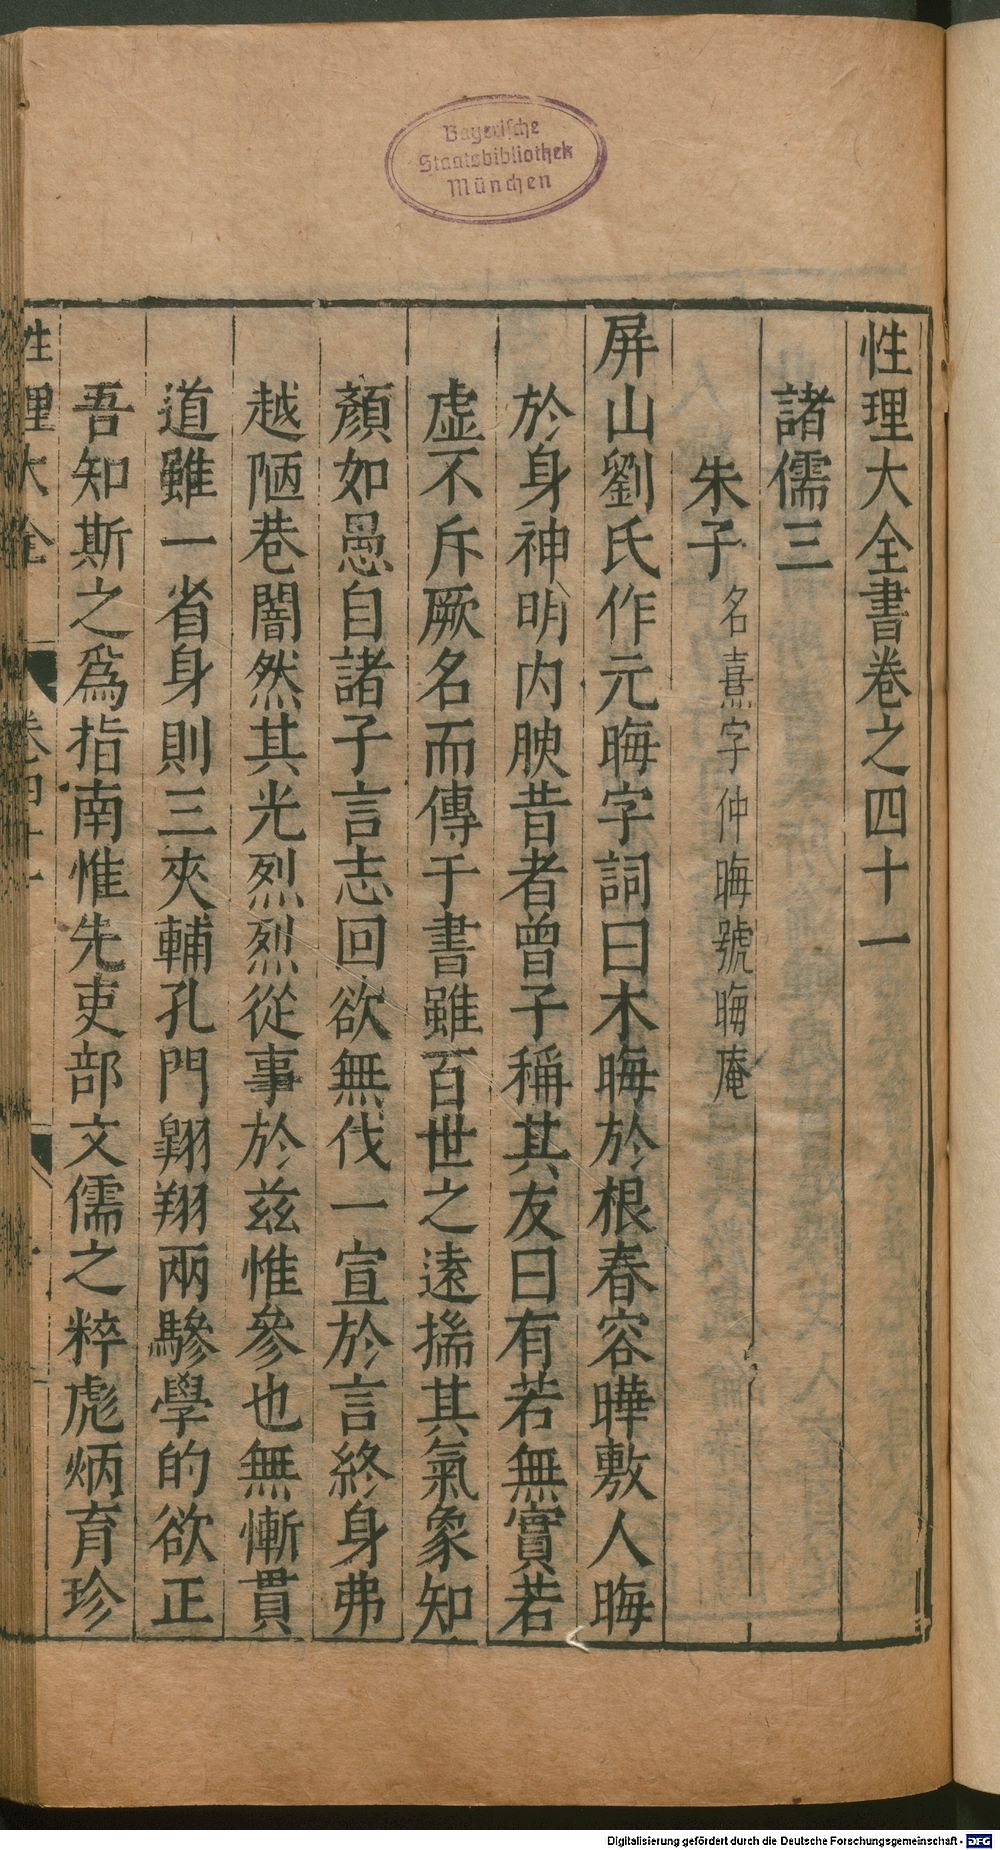 Bayerische
Staatsbibliothek
München
性理大全書卷之四十一
諸儒三
朱子 名熹字仲晦號晦庵
屏山劉氏作元晦字詞曰木晦於根春容曄敷人晦
於身神明內腴昔者曾子稱其友曰有若無實若
虛不斥厥名而傳于書雖百世之遠揣其氣象知
顏如愚自諸子言志回欲無伐一宣於言終身弗
越陋巷闇然其光烈烈從事於兹惟參也無慚貫
道雖一省身則三夾輔孔門翺翔兩驂學的欲正
吾知斯之爲指南惟先吏部文儒之粹彪炳育珍
性理大全
卷四十一
Digitalisierung gefördert durch die Deutsche Forschungsgemeinschaft - DFG